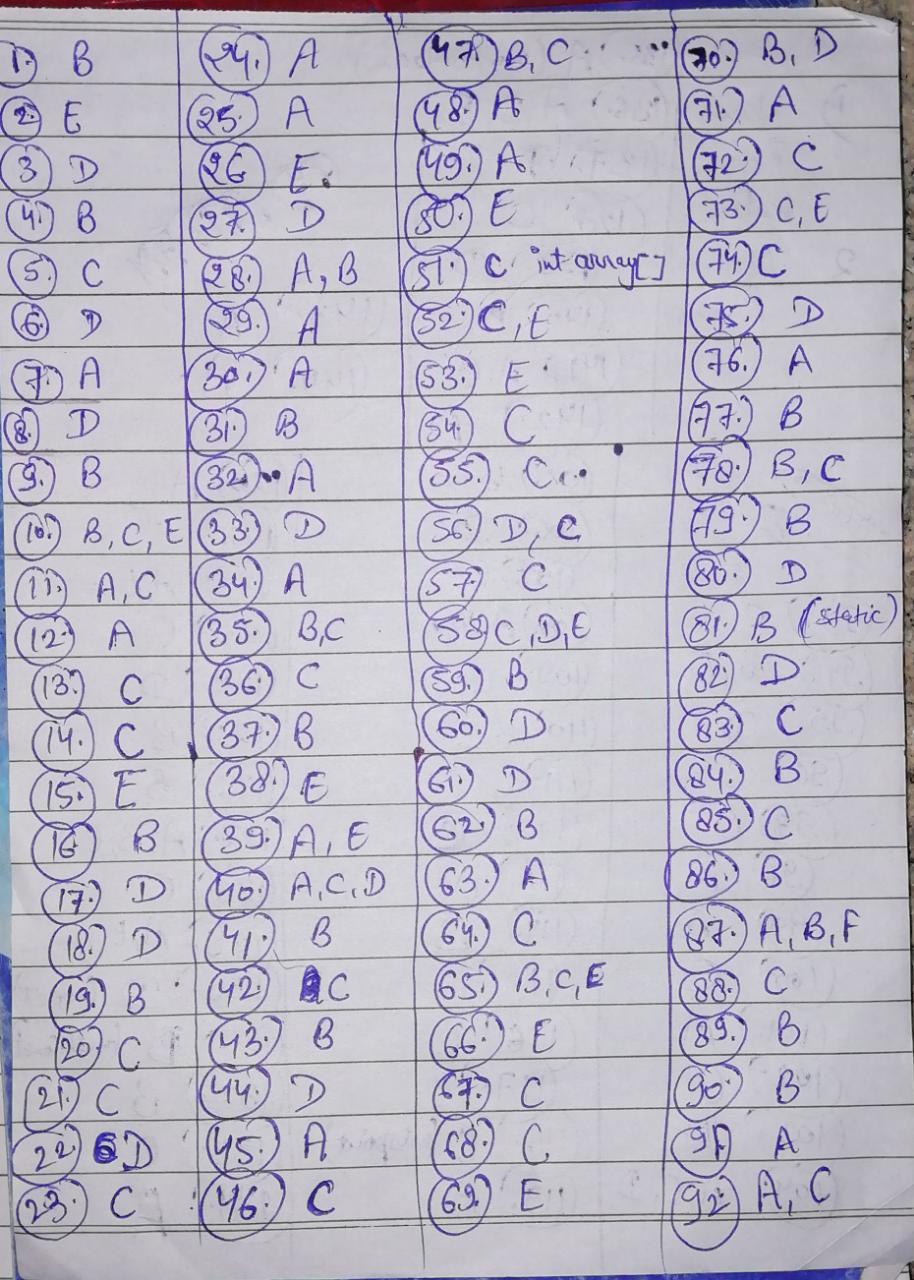 1. B
2. E
3 D
4. B
5. C
6. D
7. A
8. D
9. B
10. B, C, E
11. A, C
12. A
13. C
14. C
15. E
16 B
17. D
18. D
19. B
20. C
21. C
22. D
23. C
24. A
25. A
26 E.
27. D
28. A, B
29. A
30. A
31. B
32. A
33. D
34. A
35. B,C
36. C
37. B
38. E
39. A, E
40. A,C,D
41. B
42. C
43. B
44. D
45. A
46. C
47. B, C
48. A
49. A
50. E
51. C int array[]
52. C, E
53. E
54. C
55. C
56. D, C
57. C
58. C, D, E
59. B
60. D
61. D
62. B
63. A
64. C
65. B, C, E
66. E
67. C
68. C
69. E
70. B, D
71. A
72. C
73. C, E
74. C
75. D
76. A
77. B
78. B, C
79. B
80. D
81. B (static)
82. D
83. C
84. B
85. C
86. B
87. A, B, F
88. C
89. B
90. B
91 A
92. A, C